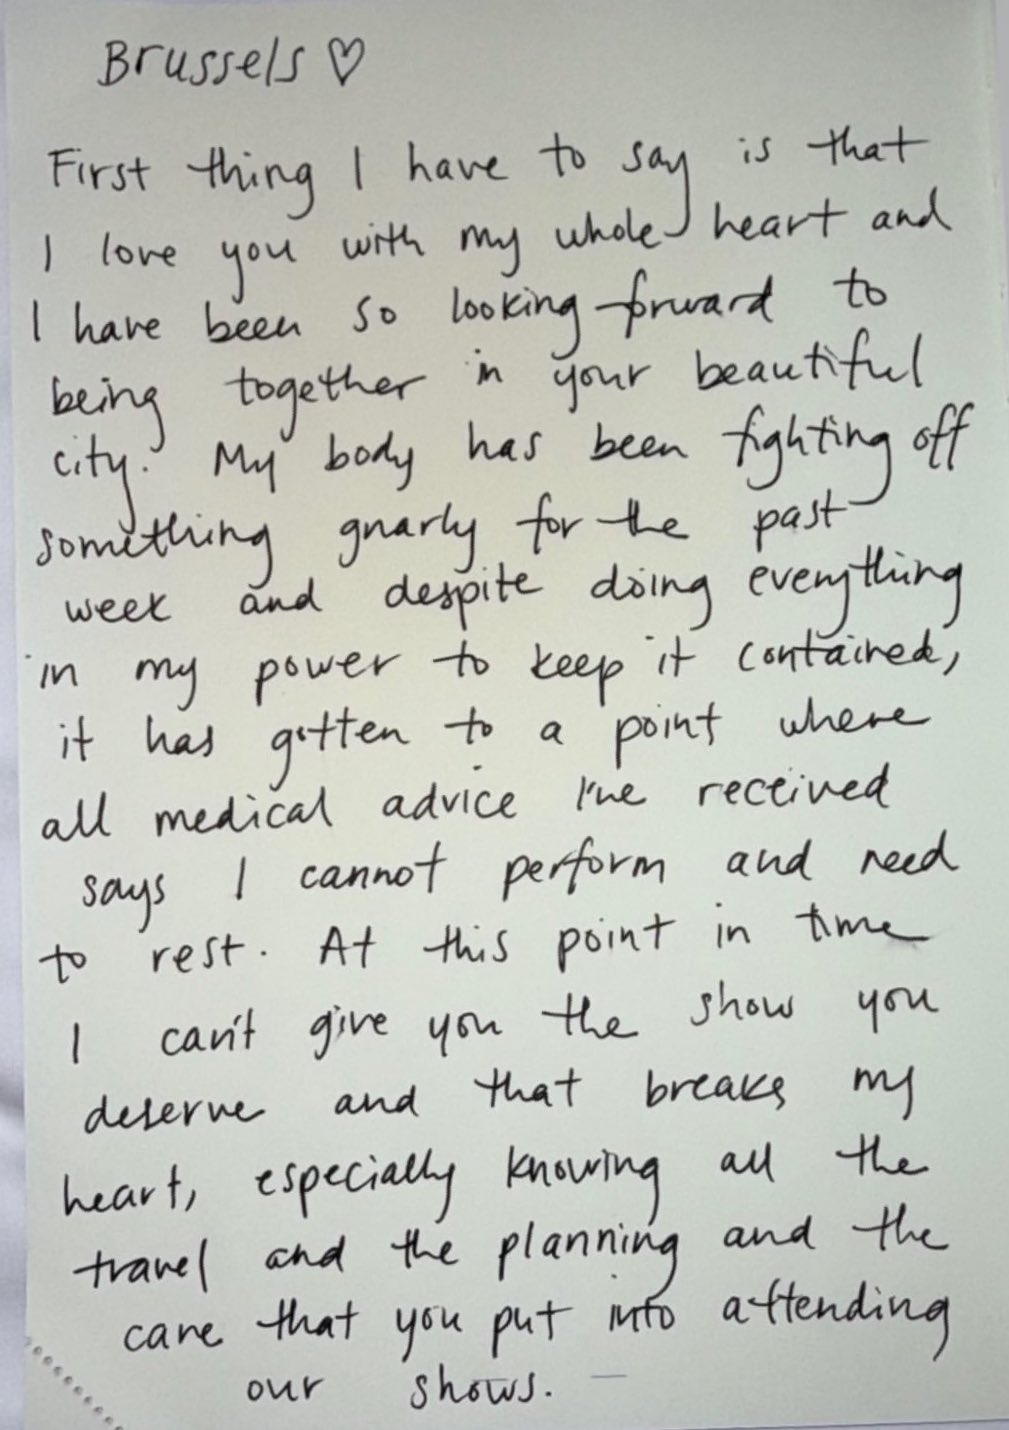 Brussels ♡
First thing I have to say is that
I love you with my whole heart and
I have been so looking forward to
being together in your beautiful
city. My body has been fighting off
something gnarly for the past
week and despite doing everything
in my power to keep it contained,
it has gotten to a point where
all medical advice I've received
says I cannot perform and need
to rest. At this point in time
I can't give you the show you
deserve and that breaks my
heart, especially knowing all the
travel and the planning and the
care that you put into attending
our shows.